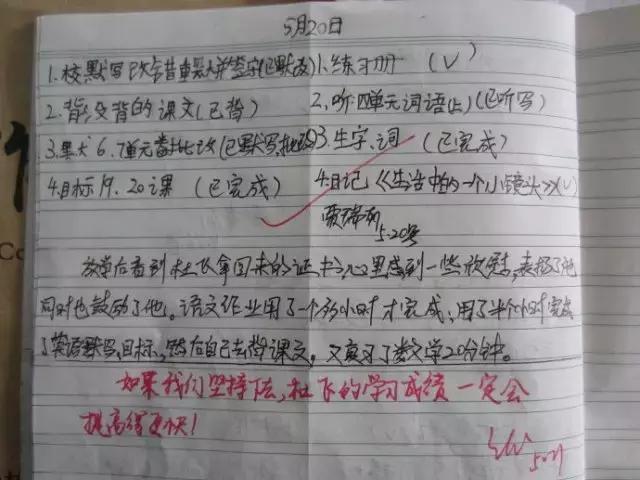 5月20日
1.校默写改错重默并签字(已默改) 1.练习册 (√)
2.背没背的课文(已背) 2.听四单元词语(上)(已听写)
3.默 6.7单元 批改(已默写,批改) 3.生字.词 (已完成)
4.目标19.20课 (已完成) 4.日记《生活中的一个小镜头》(√)
5.20号
放学后看到杜飞拿回来的证书,心里感到一些欣慰,表扬了他
同时也鼓励了他。语文作业用了一个多小时才完成,用了半个小时完成
了英语默写,目标,然后自己去背课文,又复习了数学20分钟。
如果我们坚持下去,杜飞的学习成绩一定会
提高得更快!
5.21